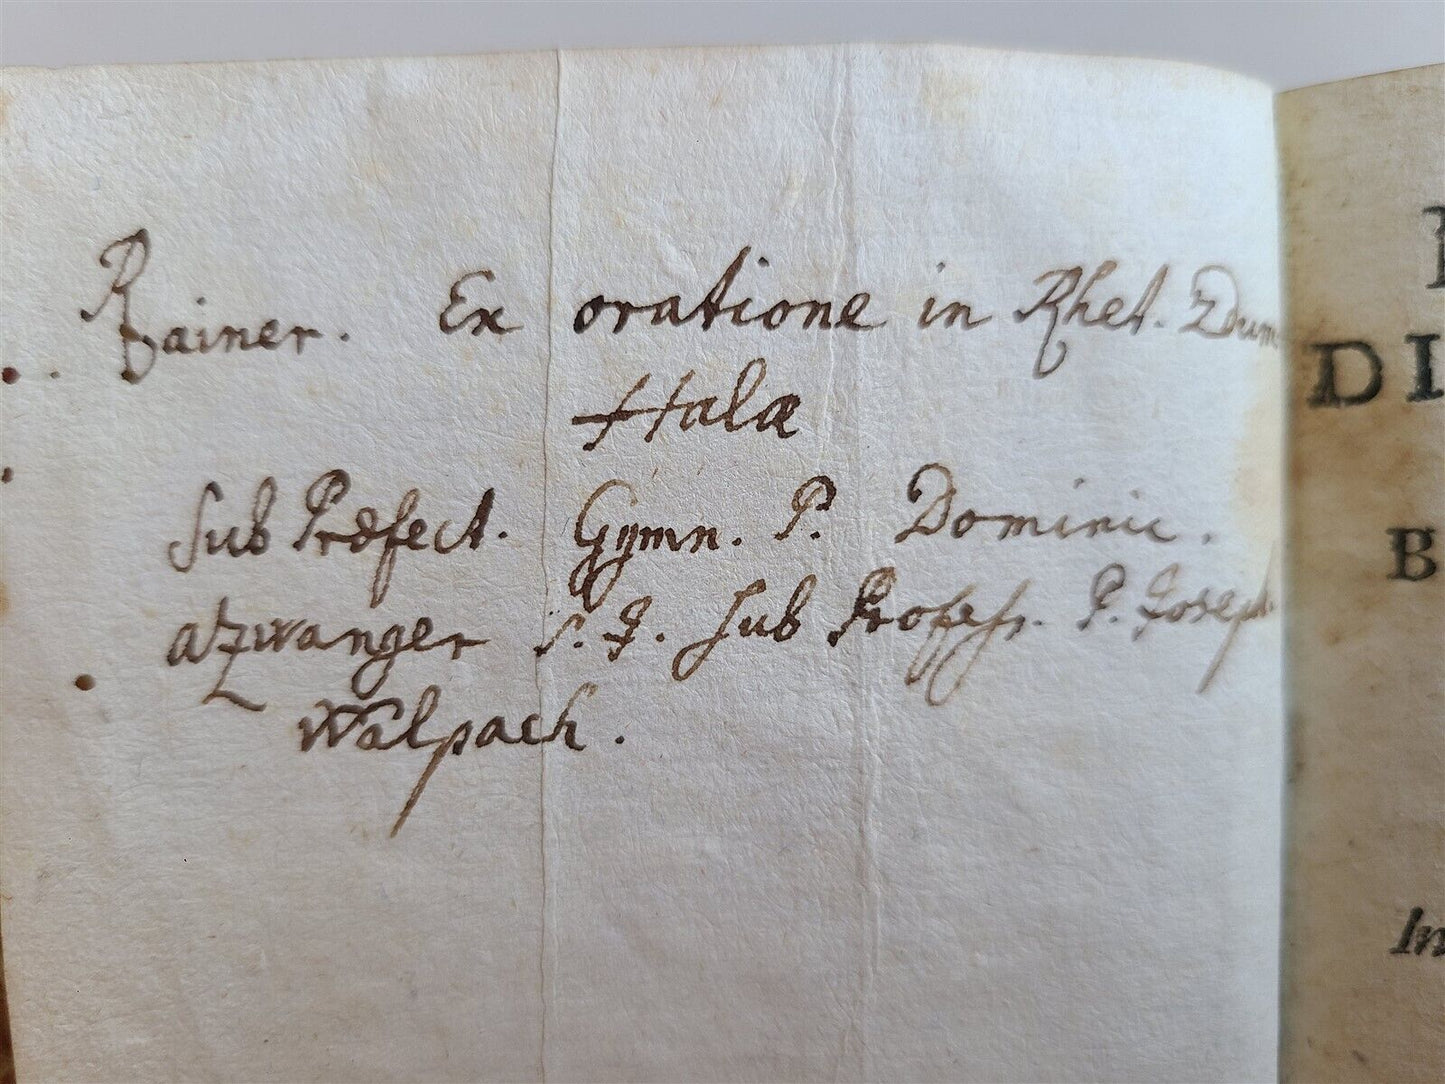 Rainer. Ex oratione in Rhet. 2dum
Halæ
sub Præfect. Gymn. P. Dominic.
aZwanger S. J. sub Profess. P. Joseph
Walpach.
DI
B
In